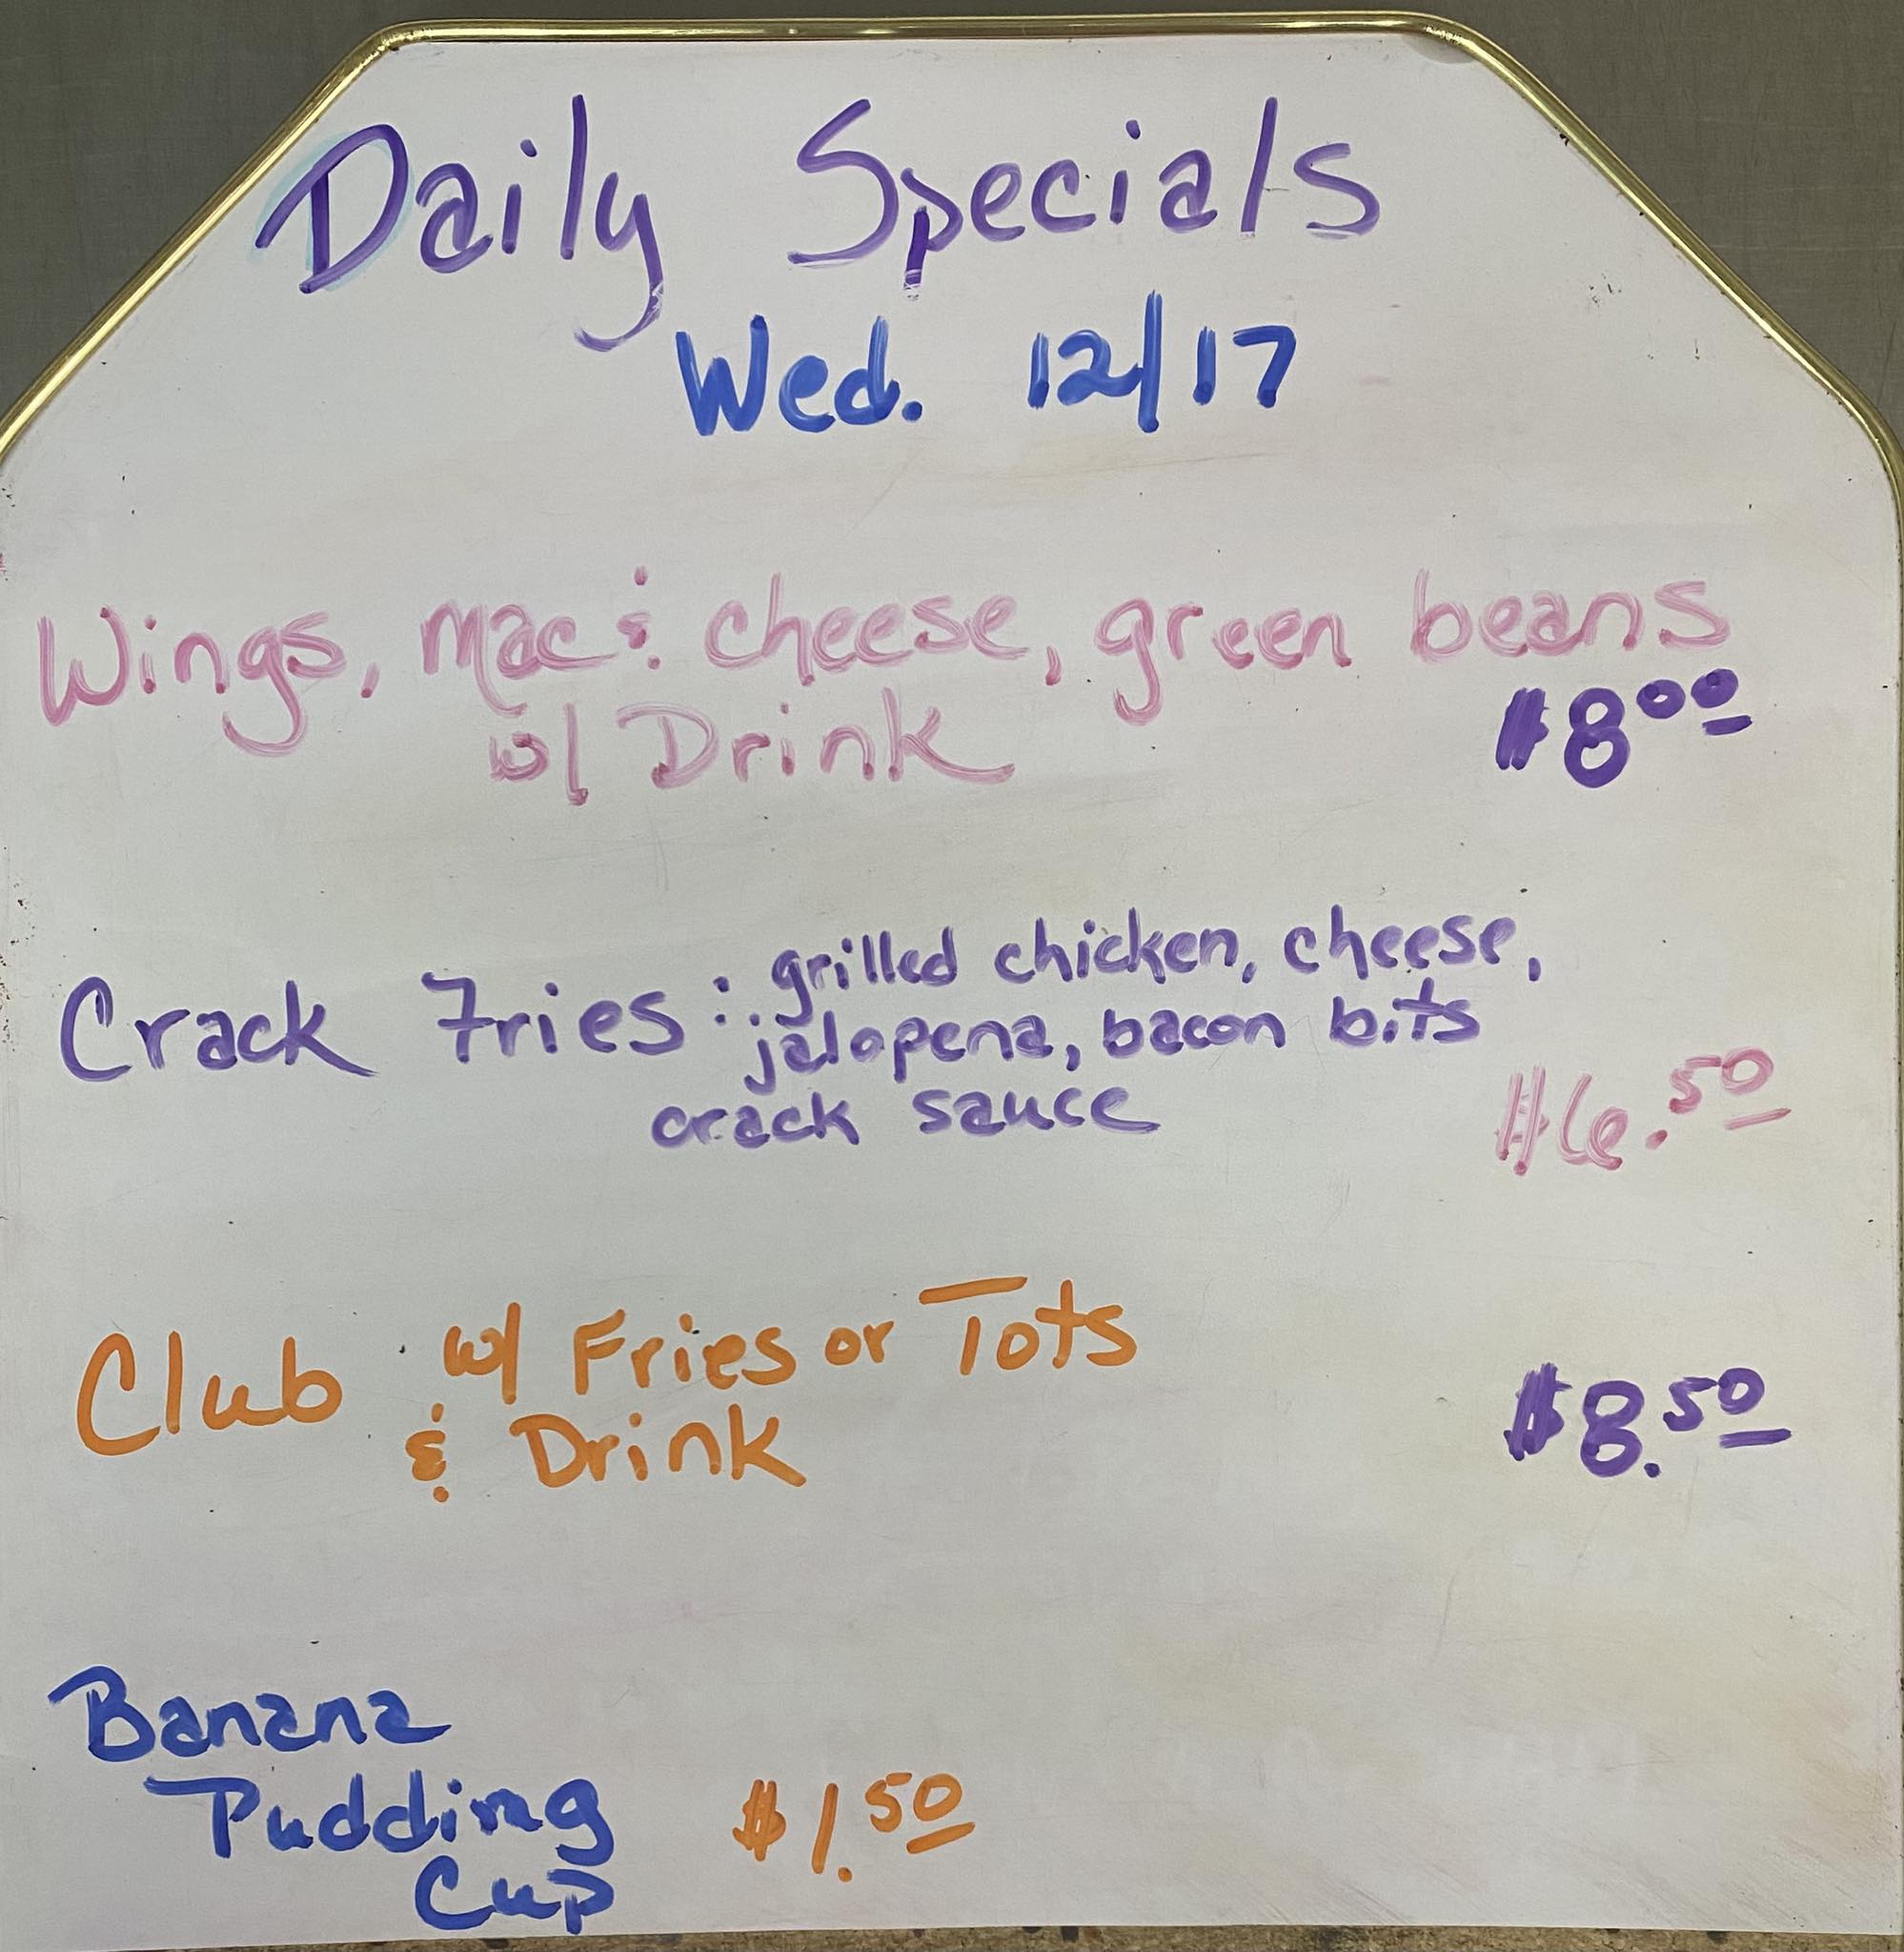 Daily Specials
Wed. 12/17
Wings, mac & cheese, green beans
w/ Drink $8.00
Crack Fries: grilled chicken, cheese,
jalopena, bacon bits
crack sauce $6.50
Club w/ Fries or Tots
& Drink $8.50
Banana
Pudding $1.50
Cup